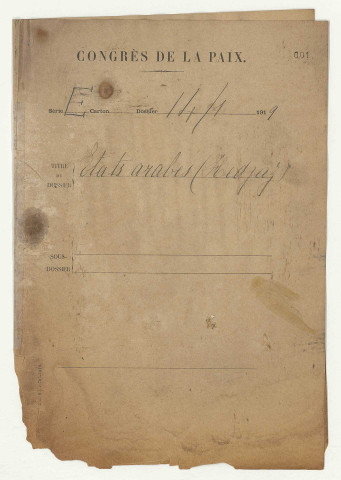 CONGRÈS DE LA PAIX.
Série E Carton Dossier 14/1 1919
TITRE DU DOSSIER États arabes (Hedjaz)
SOUS-DOSSIER